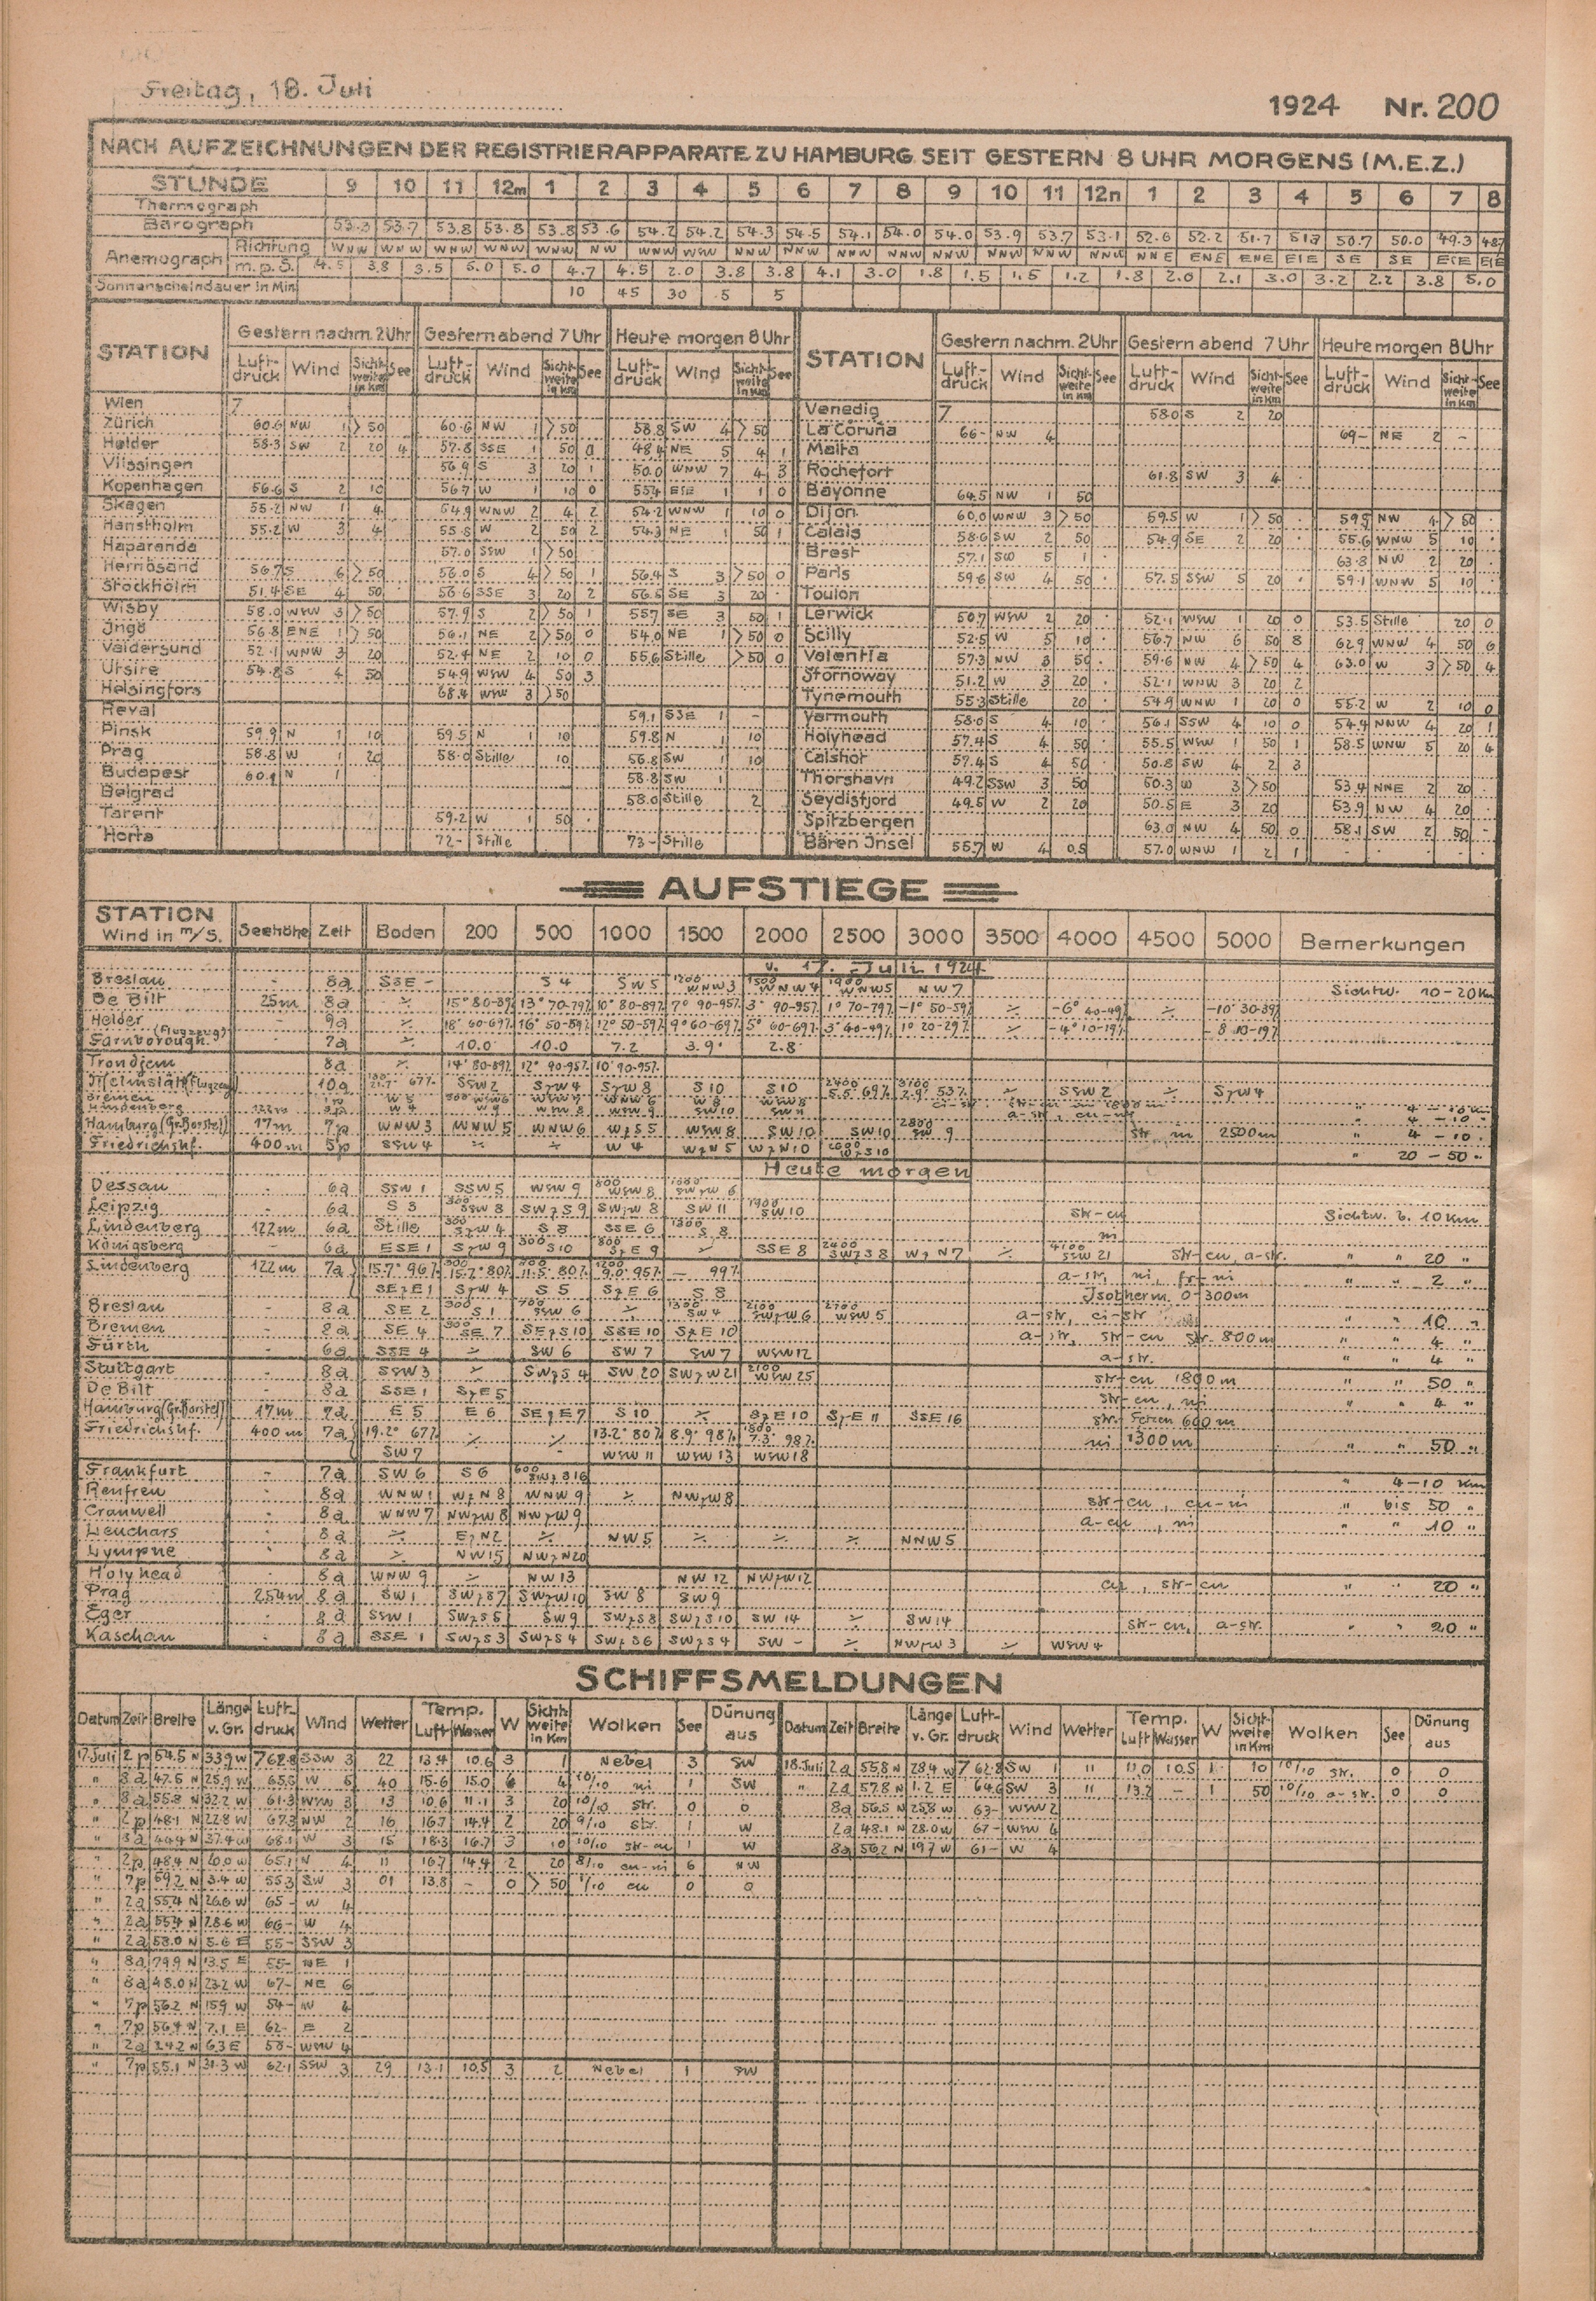 Freitag, 18. Juli
1924 Nr. 200
NACH AUFZEICHNUNGEN DER REGISTRIERAPPARATE ZU HAMBURG SEIT GESTERN 8 UHR MORGENS (M.E.Z.)
STUNDE 9 10 11 12m 1 2 3 4 5 6 7 8 9 10 11 12n 1 2 3 4 5 6 7 8
Thermograph
Barograph 53.3 53.7 53.8 53.8 53.8 53.6 54.2 54.2 54.3 54.5 54.1 54.0 54.0 53.9 53.7 53.1 52.6 52.2 51.7 50.7 50.0 49.3
Anemograph Richtung WNW WNW WNW WNW WNW NW WNW WSW WNW NNW NNW NNW NNW NNW NNW NNW NNE ENE ENE SE SE
m.p.S. 4.5 3.8 3.5 5.0 5.0 4.7 4.5 2.0 3.8 3.8 4.1 3.0 1.8 1.5 1.5 1.2 1.8 2.0 2.1 3.0 3.2 2.2 3.8 5.0
Sonnenscheindauer in Min 10 45 30 5 5
STATION Gestern nachm. 2 Uhr Gestern abend 7 Uhr Heute morgen 8 Uhr STATION Gestern nachm. 2 Uhr Gestern abend 7 Uhr Heute morgen 8 Uhr
Luft-druck Wind Sicht-weite in km See Luft-druck Wind Sicht-weite in km See Luft-druck Wind Sicht-weite in km See Luft-druck Wind Sicht-weite in km See Luft-druck Wind Sicht-weite in km See Luft-druck Wind Sicht-weite in km See
Wien 7 Venedig 7 58.0 S 2 20
Zürich 60.6 NW 1 > 50 60.6 NW 1 > 50 58.8 SW 4 > 50 La Coruña 66- NW 4 69- NE 2 -
Helder 58.3 SW 2 20 4 57.8 SSE 1 50 0 48.4 NE 5 4 1 Malta
Vlissingen 56.9 S 3 20 1 50.0 WNW 7 4 3 Rochefort 61.8 SW 3 4
Kopenhagen 56.6 S 2 10 56.7 W 1 10 0 55.4 ESE 1 1 0 Bayonne 64.5 NW 1 50
Skagen 55.2 NW 1 4 54.9 WNW 2 4 2 54.2 WNW 1 10 0 Dijon 60.0 WNW 3 > 50 59.5 W 1 > 50 59.5 NW 4 > 50
Hanstholm 55.2 W 3 4 55.5 W 2 50 2 54.3 NE 1 50 1 Calais 58.6 SW 2 50 54.9 SE 2 20 55.6 WNW 5 10
Haparanda 57.0 SSW 1 > 50 Brest 57.1 SW 5 1 63.8 NW 2 20
Hernösand 56.7 S 6 > 50 56.0 S 4 > 50 1 56.4 S 3 > 50 0 Paris 59.6 SW 4 50 57.5 SSW 5 20 59.1 WNW 5 10
Stockholm 51.4 SE 4 50 56.6 SSE 3 20 2 56.5 SE 3 20 Toulon
Wisby 58.0 WSW 3 > 50 57.9 S 2 > 50 1 557 SE 3 50 1 Lerwick 50.7 WSW 2 20 52.1 WSW 1 20 0 53.5 Stille 20 0
Ingö 56.8 ENE 1 > 50 56.1 NE 2 > 50 0 54.0 NE 1 > 50 0 Scilly 52.5 W 5 10 56.7 NW 6 50 8 62.9 WNW 4 50 6
Valdersund 52.1 WNW 3 20 52.4 NE 2 10 0 55.6 Stille > 50 0 Valentia 57.3 NW 3 50 59.6 NW 4 > 50 4 63.0 W 3 > 50 4
Utsire 54.8 S 4 50 54.9 WSW 4 50 3 Stornoway 51.2 W 3 20 52.1 WNW 3 20 2
Helsingfors 68.4 WSW 3 > 50 Tynemouth 55.3 Stille 20 54.9 WNW 1 20 0 55.2 W 2 10 0
Reval 59.1 SSE 1 - Yarmouth 58.0 S 4 10 56.1 SSW 4 10 0 54.4 NNW 4 20 1
Pinsk 59.9 N 1 10 59.5 N 1 10 59.8 N 1 10 Holyhead 57.4 S 4 50 55.5 WSW 1 50 1 58.5 WNW 5 20 4
Prag 58.8 W 1 20 58.0 Stille 10 56.8 SW 1 10 Calshot 57.4 S 4 50 50.8 SW 4 2 3
Budapest 60.1 N 1 58.8 SW 1 Thorshavn 49.2 SSW 3 50 50.3 W 3 > 50 53.4 NNE 2 20
Belgrad 58.0 Stille 2 Seydisfjord 49.5 W 2 20 50.5 E 3 20 53.9 NW 4 20
Tarent 59.2 W 1 50 Spitzbergen 63.0 NW 4 50 0 58.1 SW 2 50 -
Horta 72- Stille 73- Stille Bären Insel 55.7 W 4 0.5 57.0 WNW 1 2 1
AUFSTIEGE
STATION Wind in m/S. Seehöhe Zeit Boden 200 500 1000 1500 2000 2500 3000 3500 4000 4500 5000 Bemerkungen
v. 17. Juli 1924
Breslau - 8a SSE - S 4 SW 5 1200 WNW 3 1500 WNW 4 1900 WNW 5 NW 7 Sichtw. 10-20 Km
De Bilt 25m 8a ⁒ 15° 80-89% 13° 70-79% 10° 80-89% 7° 90-95% 3° 90-95% 1° 70-79% -1° 50-59% -6° 40-49% ⁒ -10° 30-39%
Helder - 9a ⁒ 18° 60-69% 16° 50-59% 12° 50-59% 9° 60-69% 5° 60-69% 3° 40-49% 1° 20-29% ⁒ -4° 10-19% -8 10-19%
Farnborough (Flugzeug) 7a ⁒ 10.0 10.0 7.2 3.9 2.8
Trondjem 8a ⁒ 14° 80-89% 12° 90-95% 10° 90-95%
10a 67% SSW 2 SzW 4 SzW 8 S 10 S 10 2400 5.5 69% 3100 2.9° 53% ⁒ SSW 2 ⁒ SzW 4
Bremen
Lindenberg 122m W 4 W 9 WSW 8 WSW 9 SW 10
Hamburg (Gr. Borstel) 17m 7p WNW 3 WNW 5 WNW 6 WzS 5 WSW 8 SW 10 SW 10 2800 SW 9 str. ni 2500m " 4 - 10 "
Friedrichshf. 400m 5p SSW 4 ⁒ ⁒ W 4 WzN 5 WzN 10 2600 WzS 10 " 20 - 50 "
Heute morgen
Dessau - 6a SSW 1 SSW 5 WSW 9 800 WSW 8 1000 SWzW 6
Leipzig - 6a S 3 300 SSW 8 SWzS 9 SWzW 8 SW 11 1900 SW 10 str-cu Sichtw. b. 10 Km
Lindenberg 122m 6a Stille 300 SzW 4 S 8 SSE 6 1300 S 8 ni
Königsberg - 6a ESE 1 SzW 9 300 S 10 800 SzE 9 ⁒ SSE 8 2400 SWzS 8 WzN 7 ⁒ 4100 SSW 21 str-cu, a-str. " " 20 "
Lindenberg 122m 7a 15.7° 96% 15.7° 80% 11.5° 80% 9.0° 95% - 99% a-str, ni, fr-ni " " 2 "
SEzE 1 SzW 4 S 5 SzE 6 S 8 Isotherm. 0-300m
Breslau - 8a SE 2 300 S 1 700 SSW 6 ⁒ 1300 SW 4 2100 SWzW 6 2700 WSW 5 a-str, ci-str " " 10 "
Bremen - 8a SE 4 300 SE 7 SEzS 10 SSE 10 SzE 10 a-str, str-cu str. 800 m " " 4 "
Fürth - 6a SSE 4 ⁒ SW 6 SW 7 SW 7 WSW 12 a-str. " " 4 "
Stuttgart - 8a SSW 3 ⁒ SWzS 4 SW 20 SWzW 21 2100 WSW 25 str-cu 1800 m " " 50 "
De Bilt - 8a SSE 1 SzE 5 str-cu, ni " " 4 "
Hamburg (Gr. Borstel) 17m 7a E 5 E 6 SEzE 7 S 10 ⁒ SzE 10 SzE 11 SSE 16 str. Fetzen 600 m
Friedrichshf. 400m 7a 19.2° 67% ⁒ ⁒ 13.2° 80% 8.9° 98% 1800 7.3° 98% ni 1300 m " " 50 "
SW 7 - WSW 11 WSW 13 WSW 18
Frankfurt - 7a SW 6 S 6 600 SWzS 16 " 4-10 Km
Renfrew - 8a WNW 1 WzN 8 WNW 9 ⁒ NWzW 8 str-cu, cu-ni " bis 50 "
Cranwell - 8a WNW 7 NWzW 8 NWzW 9 a-cu, ni " " 10 "
Leuchars - 8a ⁒ EzN 2 ⁒ NW 5 ⁒ ⁒ ⁒ NNW 5
Lympne - 8a ⁒ NW 15 NWzN 20
Holyhead - 8a WNW 9 ⁒ NW 13 NW 12 NWzW 12 cu, str-cu " " 20 "
Prag 254m 8a SW 1 SWzS 7 SWzW 10 SW 8 SW 9
Eger - 8a SSW 1 SWzS 5 SW 9 SWzS 8 SWzS 10 SW 14 ⁒ SW 14 str-cu, a-str. " " 20 "
Kaschau - 8a SSE 1 SWzS 3 SWzS 4 SWzS 6 SWzS 4 SW - ⁒ NWzW 3 ⁒ WSW 4
SCHIFFSMELDUNGEN
Datum Zeit Breite Länge v. Gr. Luft-druck Wind Wetter Temp. Luft Wasser W Sicht-weite in Km Wolken See Dünung aus Datum Zeit Breite Länge v. Gr. Luft-druck Wind Wetter Temp. Luft Wasser W Sicht-weite in Km Wolken See Dünung aus
17. Juli 2p 54.5 N 33.9 W 762.8 SSW 3 22 13.4 10.6 3 1 Nebel 3 SW 18. Juli 2a 55.8 N 28.4 W 762.8 SW 1 " 11.0 10.5 1 10 10/10 str. 0 0
" 8a 47.5 N 25.9 W 65.5 W 5 40 15.6 15.0 6 4 10/10 ni 1 SW " 2a 57.8 N 1.2 E 64.6 SW 3 " 13.2 - 1 50 10/10 a-str. 0 0
" 8a 55.8 N 32.2 W 61.3 WSW 3 13 10.6 11.1 3 20 10/10 str. 0 0 8a 56.5 N 25.8 W 63- WSW 2
" 2p 48.1 N 22.8 W 67.3 NW 2 16 16.7 14.4 2 20 9/10 str. 1 W 2a 48.1 N 28.0 W 67- WSW 4
" 8a 44.4 N 37.4 W 68.1 W 3 15 18.3 16.7 3 10 10/10 str-cu 1 W 8a 56.2 N 19.7 W 61- W 4
" 2p 48.4 N 10.0 W 65.1 N 4 11 16.7 14.4 2 20 8/10 cu-ni 6 NW
" 7p 59.2 N 3.4 W 55.3 SW 3 01 13.8 - 0 > 50 1/10 cu 0 0
" 2a 55.4 N 26.6 W 65- W 4
" 2a 55.4 N 28.6 W 66- W 4
" 2a 58.0 N 5.6 E 55- SSW 3
" 8a 79.9 N 13.5 E 55- NE 1
" 8a 48.0 N 23.2 W 67- NE 6
" 7p 56.2 N 15.9 W 54- W 4
" 7p 56.4 N 7.1 E 62- E 2
" 2a 6.3 E 58- WNW 4
" 7p 55.1 N 31.3 W 62.1 SSW 3 29 13.1 10.5 3 2 Nebel 1 SW